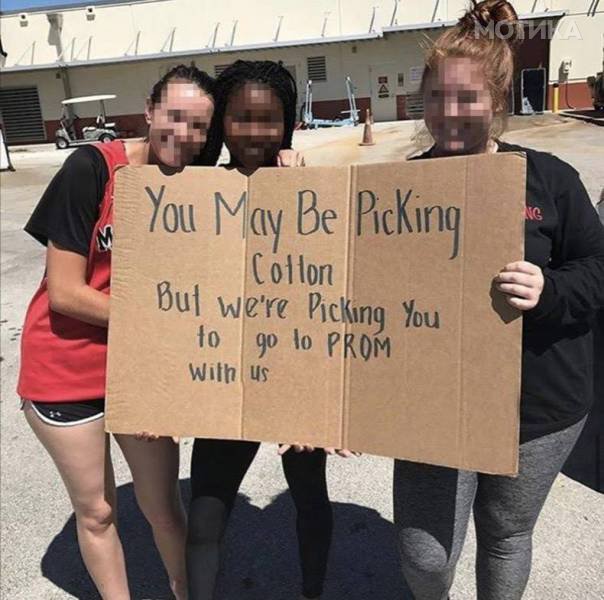 МОТИКА
You May Be Picking
Cotton
But we're Picking You
to go to PROM
with us
NG
M